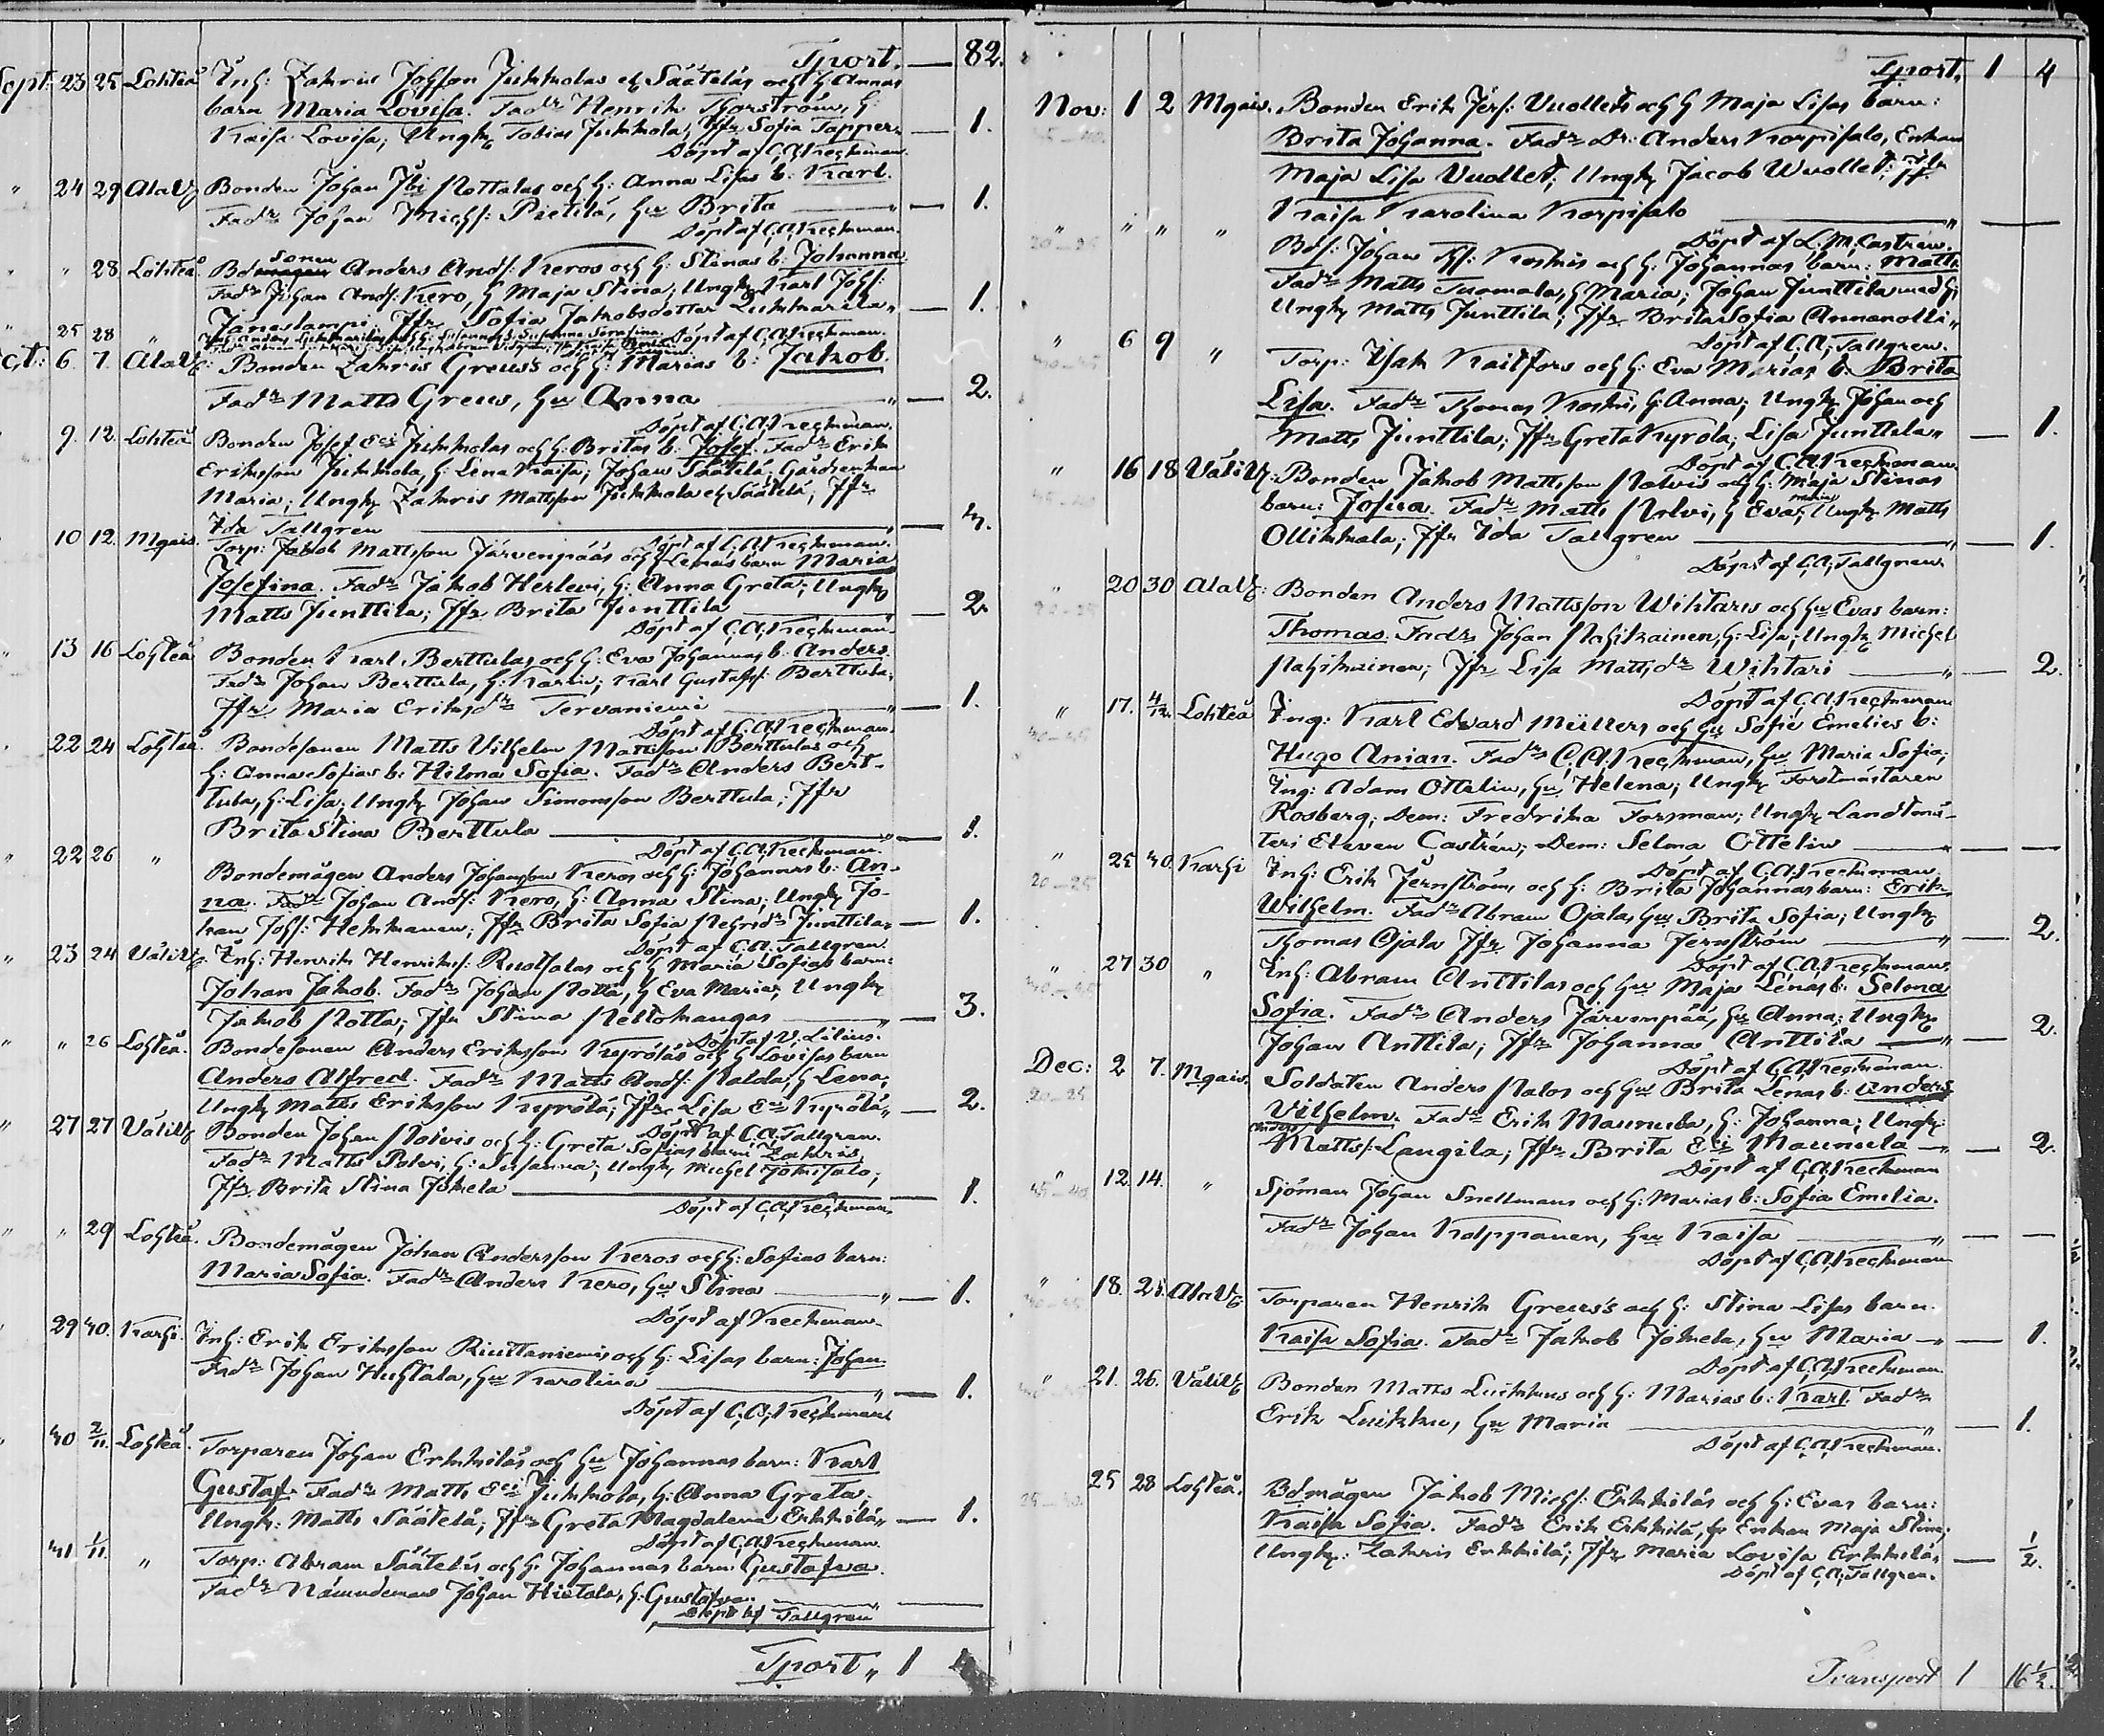 Tport. — 82.
Sept: 23 25 Lohteå Inh: Zakris Johsson Jukkolas el. Sääteläs och h Annas
barn Maria Lovisa. Fadr Henrik Thorström, h:
Kaisa Lovisa, Ungk Tobias Jukkola, Jfr Sofia Topper — 1.
Döpt af C. A. Keckman.
" 24 29 Alav Bonden Johan Nottalas och h: Anna Lisas b: Karl.
Fadr Johan Michs: Pietilä, hu Brita — 1.
Döpt af C. A. Keckman.
" " 28 Lohteå Bdsonen Anders Ands: Keros och h: Stinas b: Johanna
Fadr Johan Ands: Kero, h Maja Stina; Ungk Karl Johs:
Janeslampi Jfr Sofia Jakobsdotter — 1.
" 25 28 " Döpt af C. A. Keckman.
Oct: 6. 7. Alav: Bonden Zakris Greus's och h: Marias b: Jakob.
Fadr Matts Greus, hu Anna — 2.
Döpt af C. A. Keckman.
" 9. 12. Lohteå Bonden Josef Jukkolas och h: Britas b: Josef. Fadr Erik
Eriksson Jukkola, h: Lena Kaisa; Johan Säätelä Gårdsenkan
Maria; Ungk Zakris Mattsson Jukkola el. Säätelä; Jfr
Ida Tallgren —
Döpt af C. A. Keckman.
10 12. Mgais. Torp: Jakob Mattsson Järvenpääs och h Lenas barn Maria
Josefina. Fadr Jakob Herlevi, h: Anna Greta; Ungk
Matts Junttila; Jfr Brita Junttila — 2.
Döpt af C. A. Keckman.
" 13 16 Lohteå Bonden Karl Berttulas och h: Eva Johannas b: Anders.
Fadr Johan Berttula, h: Karin; Karl Gustafs: Berttula,
Jfr Maria Eriksdr Tervaniemi — 1.
Döpt af C. A. Keckman.
" 22 24 Lohteå. Bondesonen Matts Vilhelm Mattsson Berttulas och
h: Anna Sofias b: Hilma Sofia. Fadr Anders Bert-
tula, h: Lisa; Ungk Johan Simonsson Berttula; Jfr
Brita Stina Berttula — 1.
Döpt af C. A. Keckman.
" 22 26 " Bondemågen Anders Johansson Keros och h: Johannas b: An-
na. Fadr Johan Ands: Kero, h: Anna Stina; Ungk Jo-
han Johs: Hekkanen; Jfr Brita Sofia Junttila — 1.
Döpt af C. A. Tallgren.
" 23 24 Väliv Inh: Henrik Henriks: Ruotsalas och h Maria Sofias barn:
Johan Jakob. Fadr Johan Notta, h Eva Maria; Ungk
Jakob Notta; Jfr Stina — 3.
Döpt af V. Lilius.
" " 26 Lohteå. Bondesonen Anders Eriksson Kyröläs och h Lovisas barn
Anders Alfred. Fadr Matts Ands: h Lena;
Ungk Matts Eriksson Kyrölä; Jfr Lisa Kyrölä — 2.
Döpt af C. A. Tallgren.
" 27 27 Väliv Bonden Johan och h: Greta Sofias barn Zakris.
Fadr Matts h: Susanna; Ungk Michel Jokisalo;
Jfr Brita Stina Jokela — 1.
Döpt af C. A. Keckman.
" " 29 Lohteå. Bondemågen Johan Andersson Keros och h: Sofias barn:
Maria Sofia. Fadr Anders Kero, hu Stina — 1.
Döpt af Keckman.
29 30. Karhi. Inh: Erik Eriksson Riuttaniemis och h: Lisas barn: Johan.
Fadr Johan Huhtala, hu Karolina — 1.
Döpt af C. A. Keckman
" 30 2/11. Lohteå. Torparen Johan Erkkiläs och hu Johannas barn: Karl
Gustaf. Fadr Matts Jukkola, h: Anna Greta;
Ungk: Matts Säätelä; Jfr Greta Magdalena Erkkilä — 1.
Döpt af C. A. Keckman.
31 1/11. " Torp: Abram Säätelä och h: Johannas barn Gustafva.
Fadr Nämndeman Johan Hietala, h: Gustafva —
Döpt af Tallgren
Tport " 1
Tport. 1 4
Nov: 1 2 Mgais. Bonden Erik Jers: Vuollets och h Maja Lisas barn:
Brita Johanna. Fadr Dr: Anders Korpisalo, Enkan
Maja Lisa Vuollet; Ungk Jacob Wuollet; Jfr
Kaisa Karolina Korpisalo —
Döpt af L. M. Castrén.
" " " " Bds: Johan Koskis och h: Johannas barn: Matts.
Fadr Matts Tuomala, h Maria; Johan Junttila med h;
Ungk Matts Junttila; Jfr Brita Sofia Annanolli "
Döpt af C. A. Tallgren.
" 6 9 " Torp: Isak Kaitfors och h: Eva Marias b: Brita
Lisa. Fadr Thomas Koski, h: Anna; Ungk Johan och
Matts Junttila; Jfr Greta Kyrölä; Lisa Junttila — 1.
Döpt af C. A. Keckman.
" 16 18 Väliv: Bonden Jakob Mattsson och h: Maja Stinas
barn: Josua. Fadr Matts h Eva Maria; Ungk Matts
Ollikkala; Jfr Ida Tallgren — 1.
Döpt af C. A. Tallgren.
" 20 30 Alav: Bonden Anders Mattsson Wihtaris och hu Evas barn:
Thomas. Fadr Johan h: Lisa; Ungk Michel
Jfr Lisa Mattsdr Wihtari — 2.
Döpt af C. A. Keckman
" 17. 4/12. Lohteå Ing: Karl Edvard Müllers och hu Sofie Emelies b:
Hugo Anian. Fadr C. A. Keckman, hu Maria Sofia;
Ing: Adam Ottelin, hu Helena; Ungk Forstmästaren
Rosberg; Dem: Fredrika Forsman; Ungk Landtmä-
teri Eleven Castrén; Dem: Selma Ottelin —
Döpt af C. A. Keckman
" 25 30. Karhi Inh: Erik Jernström och h: Brita Johannas barn: Erik
Wilhelm. Fadr Abram Ojala, hu Brita Sofia; Ungk
Thomas Ojala Jfr Johanna Jernström — 2.
Döpt af C. A. Keckman.
" 27 30 " Inh: Abram Anttilas och hu Maja Lenas b: Selma
Sofia. Fadr Anders Järvenpää, hu Anna; Ungk
Johan Anttila; Jfr Johanna Anttila — 2.
Döpt af C. A. Keckman.
Dec: 2 7. Mgais. Soldaten Anders och hu Brita Lenas b: Anders
Vilhelm. Fadr Erik Maunula, h: Johanna; Ungk:
Anders Matts: Langila; Jfr Brita Maunula — 2.
Döpt af C. A. Keckman
" 12. 14. " Sjöman Johan Snellmans och h: Marias b: Sofia Emilia.
Fadr Johan Kolppanen, hu Kaisa —
Döpt af C. A. Keckman
" 18. 25. Alav Torparen Henrik Greus's och h: Stina Lisas barn.
Kaisa Sofia. Fadr Jakob Jokela, hu Maria — 1.
Döpt af C. A. Keckman.
" 21. 26. Väliv Bonden Matts Luikkus och h: Marias b: Karl. Fadr
Erik Luikku, hu Maria — 1.
Döpt af C. A. Keckman.
25 28 Lohteå. Bdmågen Jakob Michs: Erkkiläs och h: Evas barn:
Kaisa Sofia. Fadr Erik Erkkilä, Enkan Maja Stina;
Ungk: Zakris Erkkilä; Jfr Maria Lovisa Erkkilä — 1/2.
Döpt af C. A. Tallgren.
Transport 1 16 1/2.